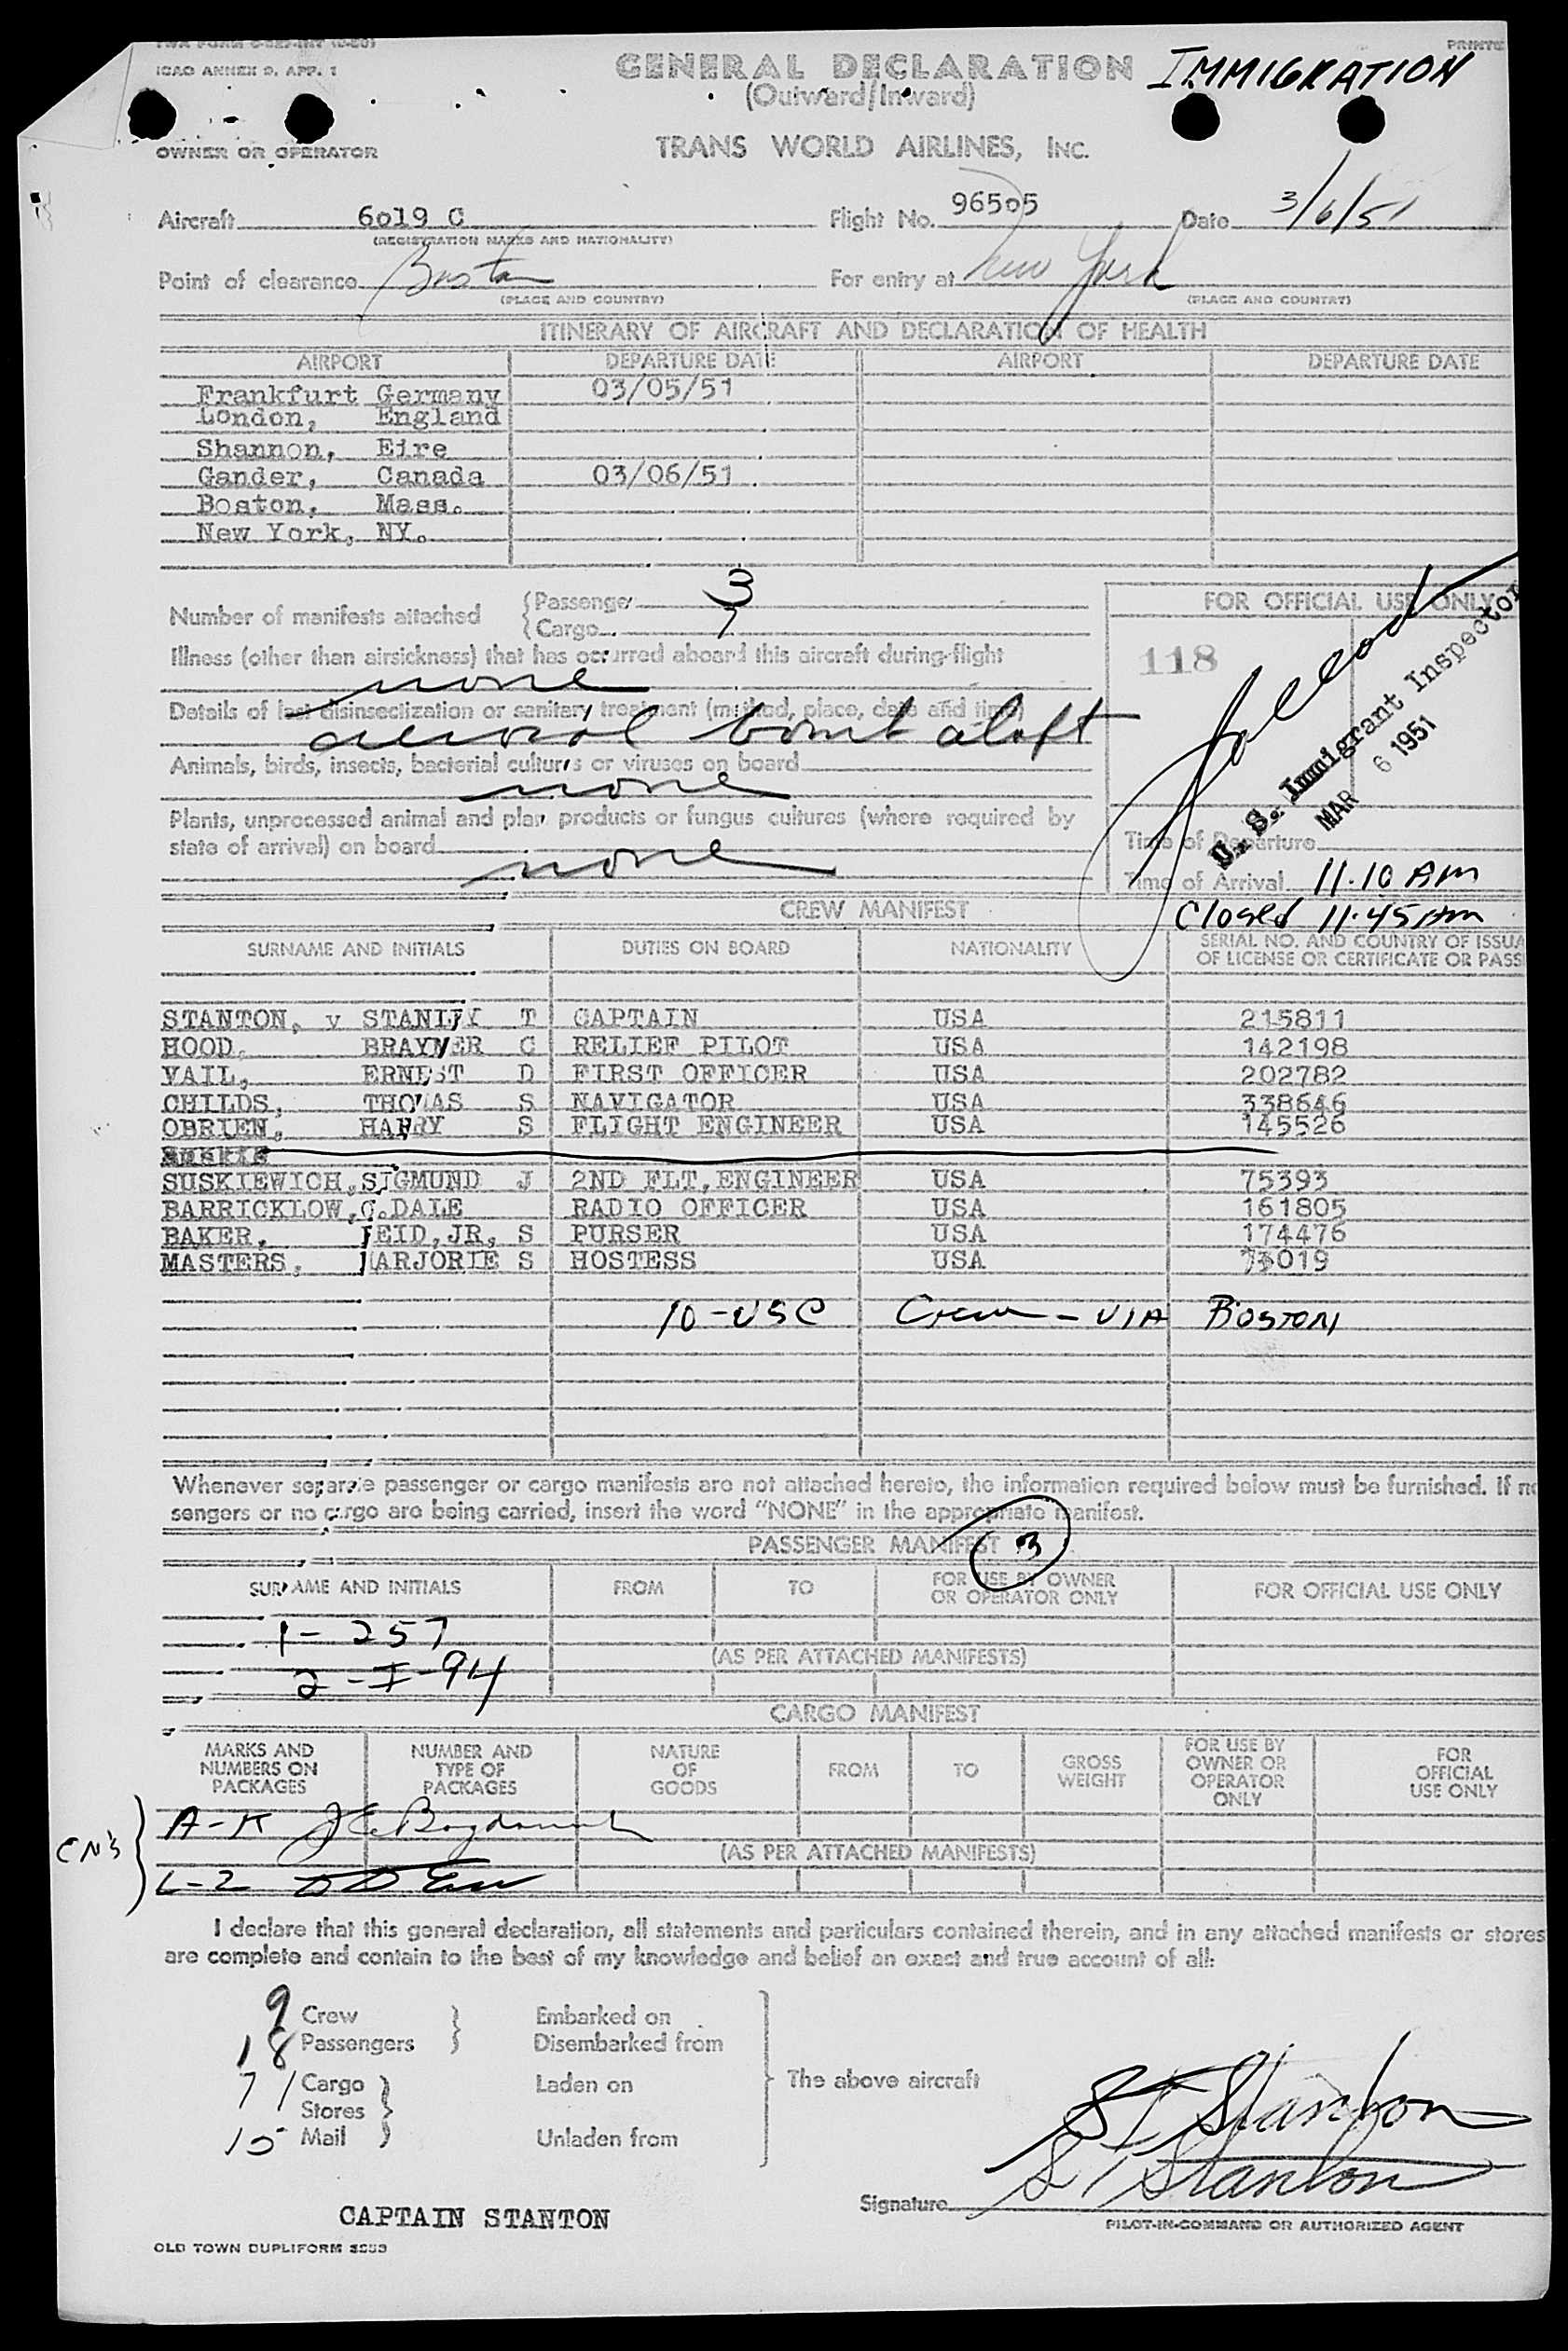 ICAO ANNEX 9, APP. 1
GENERAL DECLARATION IMMIGRATION
(Outward/Inward)
OWNER OR OPERATOR TRANS WORLD AIRLINES, INC.
Aircraft 6019 C Flight No. 96505 Date 3/6/51
(REGISTRATION MARKS AND NATIONALITY)
Point of clearance Boston For entry at New York
(PLACE AND COUNTRY) (PLACE AND COUNTRY)
ITINERARY OF AIRCRAFT AND DECLARATION OF HEALTH
AIRPORT DEPARTURE DATE AIRPORT DEPARTURE DATE
Frankfurt Germany 03/05/51
London, England
Shannon, Eire
Gander, Canada 03/06/51
Boston, Mass.
New York, NY.
Number of manifests attached { Passenger 3
{ Cargo 7
FOR OFFICIAL USE ONLY
118
U. S. Immigrant Inspector
MAR 6 1951
Illness (other than airsickness) that has occurred aboard this aircraft during flight
none
Details of last disinsectization or sanitary treatment (method, place, date and time)
aerosol bomb aloft
Animals, birds, insects, bacterial cultures or viruses on board
none
Plants, unprocessed animal and plant products or fungus cultures (where required by
state of arrival) on board
none
Time of Departure
Time of Arrival 11.10 AM
Closed 11.45 AM
CREW MANIFEST
SURNAME AND INITIALS DUTIES ON BOARD NATIONALITY SERIAL NO. AND COUNTRY OF ISSUA
OF LICENSE OR CERTIFICATE OR PASS
STANTON, v STANLEY T CAPTAIN USA 215811
HOOD, BRAYNER C RELIEF PILOT USA 142198
VAIL, ERNEST D FIRST OFFICER USA 202782
CHILDS, THOMAS S NAVIGATOR USA 338646
OBRIEN, HARRY S FLIGHT ENGINEER USA 145526
SUSKIEWICH, SIGMUND J 2ND FLT, ENGINEER USA 75393
BARRICKLOW, C. DALE RADIO OFFICER USA 161805
BAKER, REID, JR, S PURSER USA 174476
MASTERS, MARJORIE S HOSTESS USA 73019
10-USC Crew - VIA BOSTON
Whenever separate passenger or cargo manifests are not attached hereto, the information required below must be furnished. If no
sengers or no cargo are being carried, insert the word "NONE" in the appropriate manifest.
PASSENGER MANIFEST 3
SURNAME AND INITIALS FROM TO FOR USE BY OWNER
OR OPERATOR ONLY FOR OFFICIAL USE ONLY
1 - 257
(AS PER ATTACHED MANIFESTS)
2 - I - 94
CARGO MANIFEST
MARKS AND
NUMBERS ON
PACKAGES NUMBER AND
TYPE OF
PACKAGES NATURE
OF
GOODS FROM TO GROSS
WEIGHT FOR USE BY
OWNER OR
OPERATOR
ONLY FOR
OFFICIAL
USE ONLY
A-K
CN's (AS PER ATTACHED MANIFESTS)
L-Z
I declare that this general declaration, all statements and particulars contained therein, and in any attached manifests or stores
are complete and contain to the best of my knowledge and belief an exact and true account of all:
9 Crew Embarked on
18 Passengers Disembarked from
71 Cargo Laden on The above aircraft
Stores
15 Mail Unladen from
S T Stanton
S T Stanton
Signature
PILOT-IN-COMMAND OR AUTHORIZED AGENT
CAPTAIN STANTON
OLD TOWN DUPLIFORM